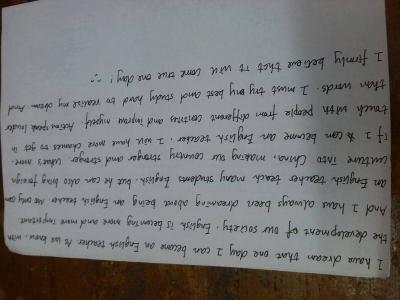 I have dream that one day I can become an English teacher. As we know, with
the development of our society. English is becoming more and more important.
And I have always been dreaming about being an English teacher. Not only can
an English teacher teach many students English. but he can also bring foreign
culture into China, making our country stronger and stronger. what's more.
If I can become an English teacher. I will have more chances to get in
touch with people from different contries and improve myself. Actions speak louder
than words. I must try my best and study hard to realize my dream. And
I firmly believe that it will come true one day!